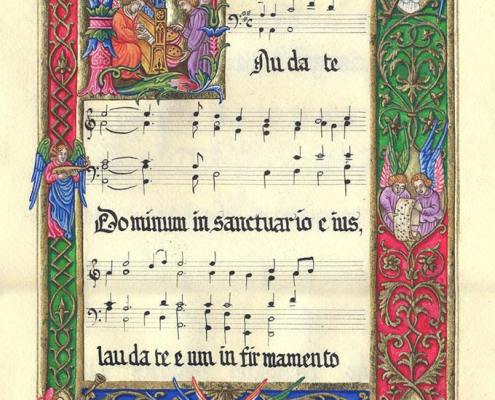 Au da te
Dominum in sanctuario e ius,
lau da te e um in fir mamento